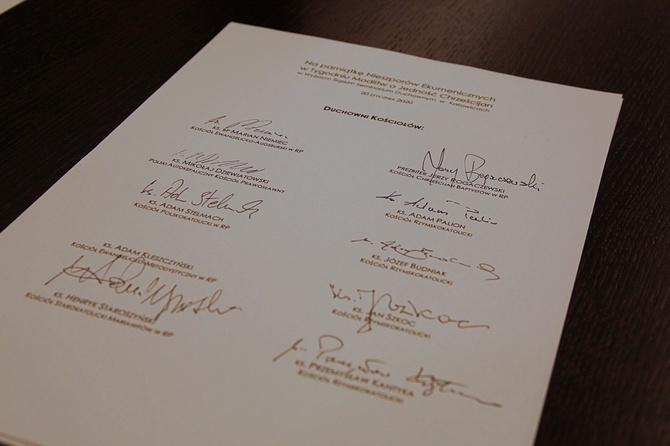 Na pamiątkę Nieszporów Ekumenicznych
w Tygodniu Modlitw o Jedność Chrześcijan
w Wyższym Śląskim Seminarium Duchownym w Katowicach
20 stycznia 2020
Duchowni Kościołów:
ks. bp Marian Niemiec
Kościół Ewangelicko-Augsburski w RP
ks. Mikołaj Dziewiatowski
Polski Autokefaliczny Kościół Prawosławny
ks. Adam Stelmach
ks. Adam Stelmach
Kościół Polskokatolicki w RP
ks. Adam Kleszczyński
Kościół Ewangelicko-Metodystyczny w RP
ks. Henryk Staroszyński
Kościół Starokatolicki Mariawitów w RP
Jerzy Rogaczewski
prezbiter Jerzy Rogaczewski
Kościół Chrześcijan Baptystów w RP
ks. Adam
ks. Adam Palion
Kościół Rzymskokatolicki
ks. Józef Budniak
Kościół Rzymskokatolicki
ks. J. Szkoc
ks. Jan Szkoc
Kościół Rzymskokatolicki
ks. Przemysław
ks. Przemysław Kantyka
Kościół Rzymskokatolicki